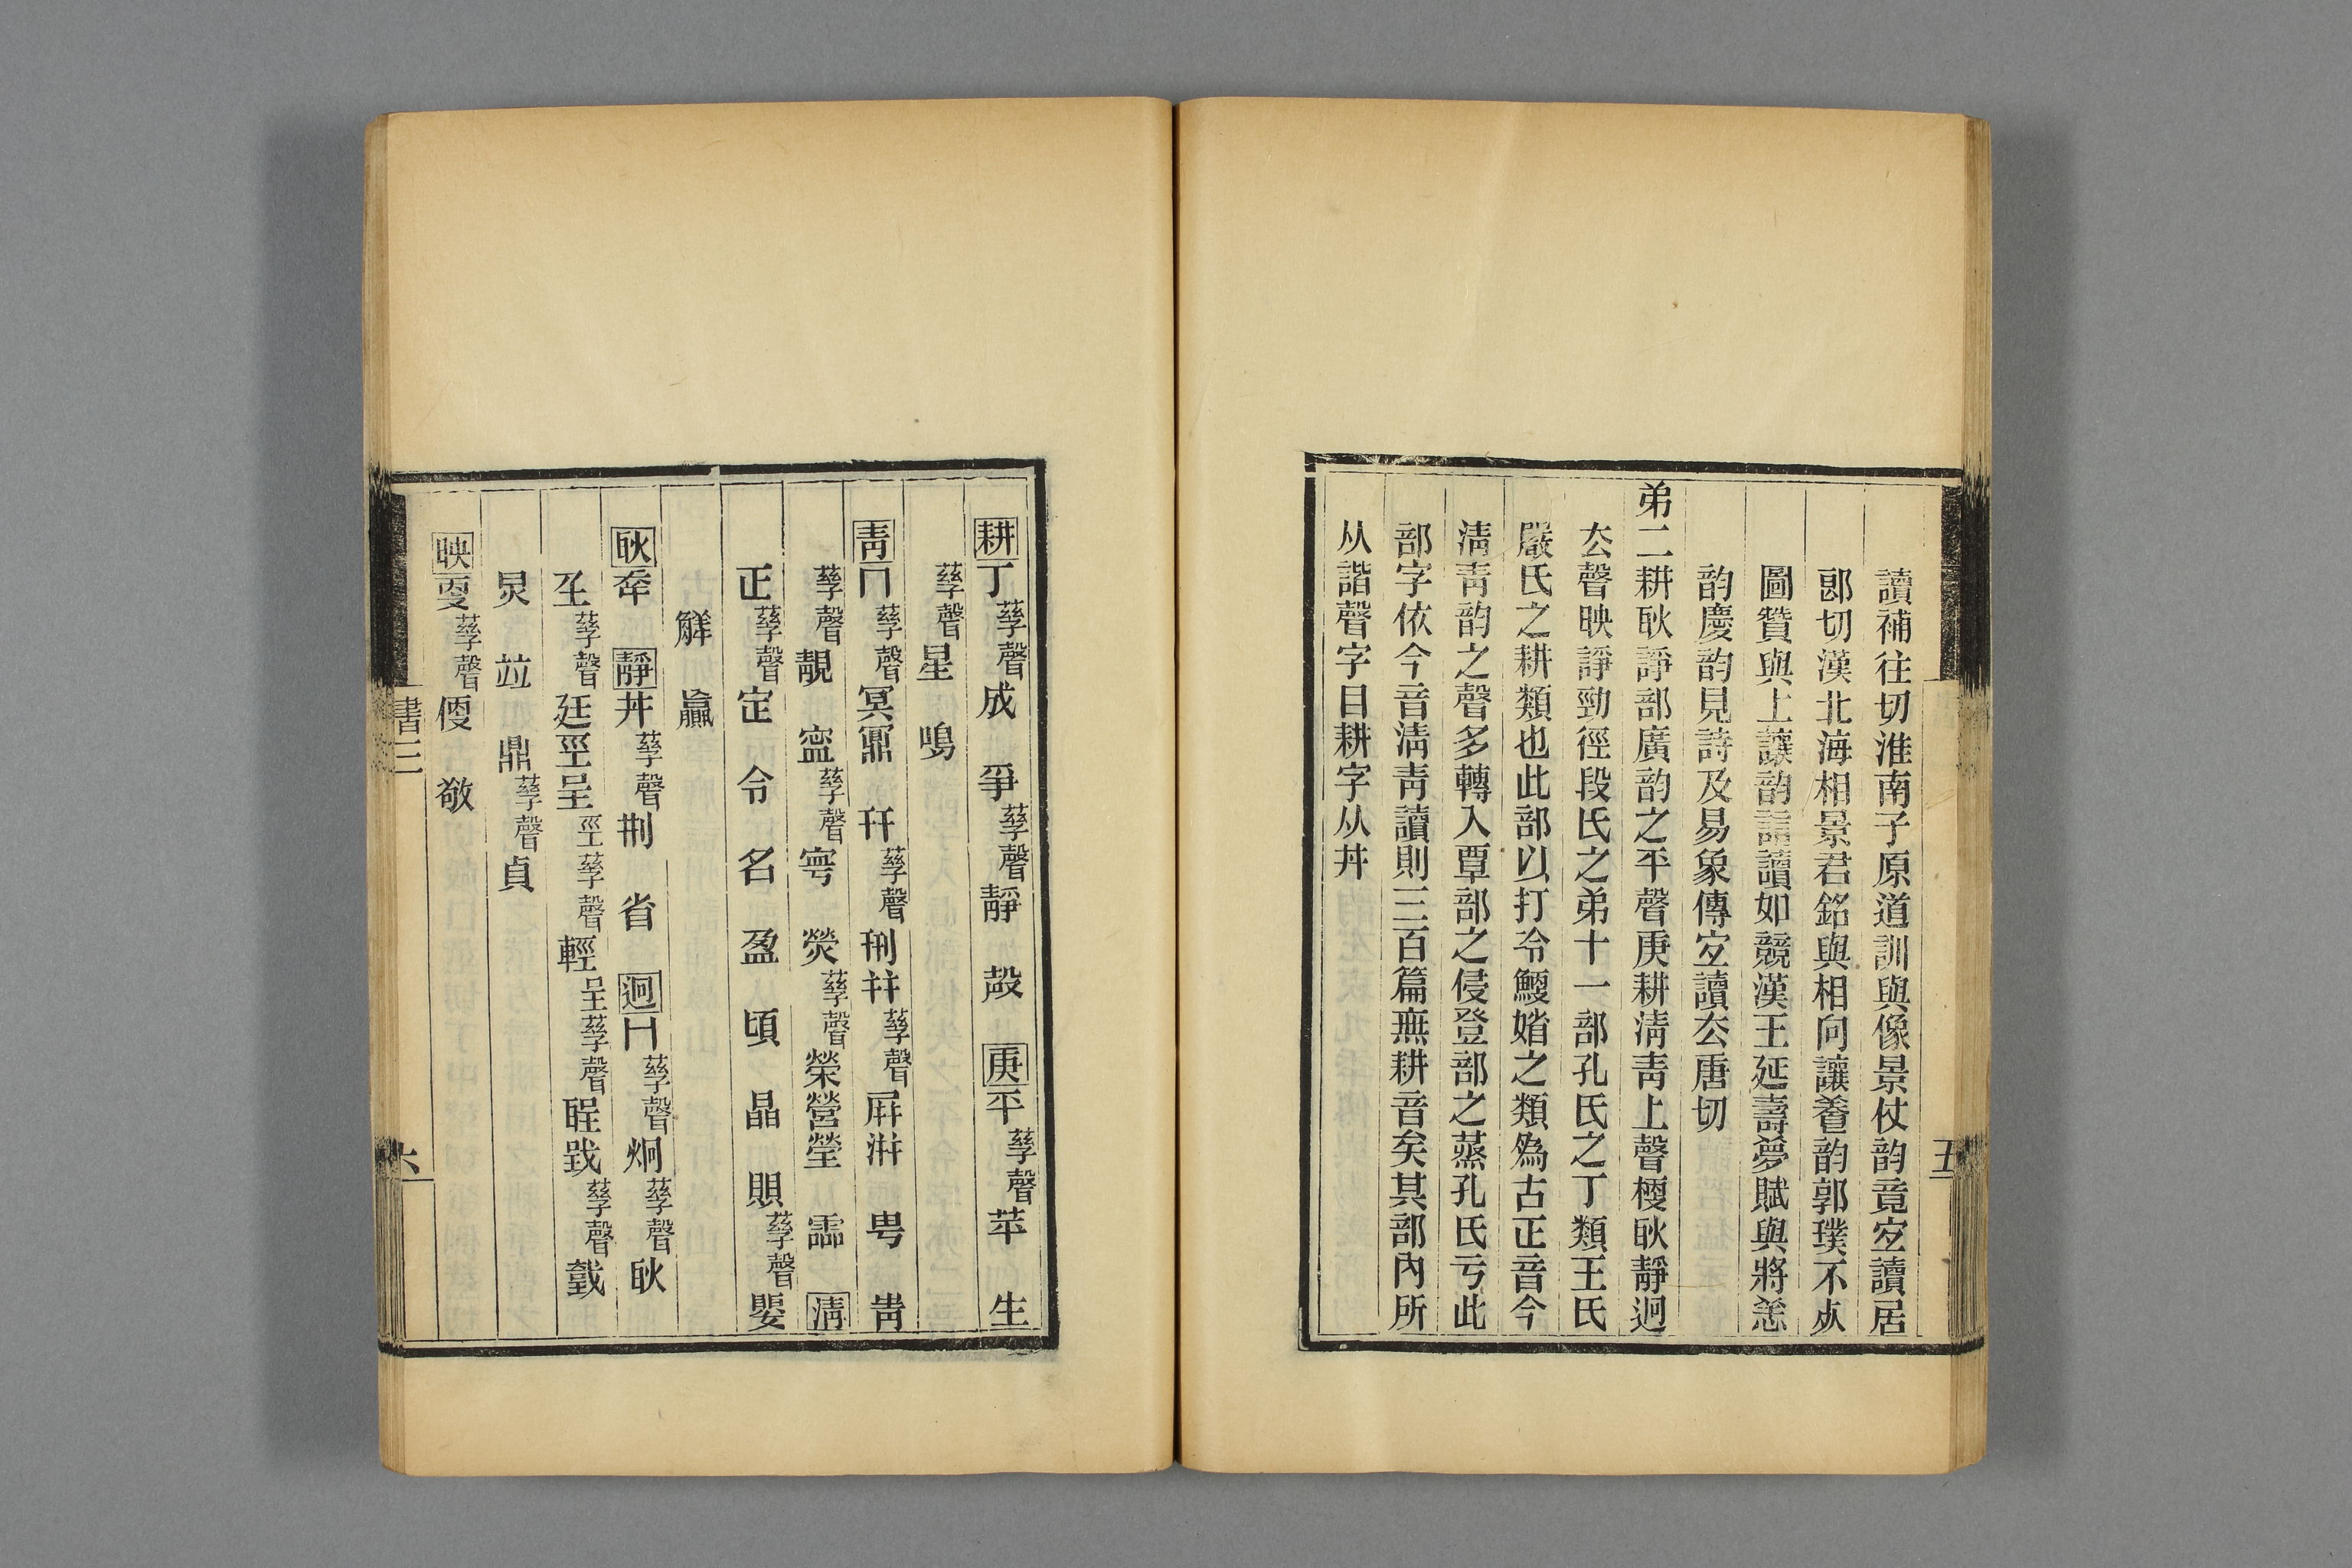 讀補往切淮南子原道訓與像景仗韵竟宐讀居
郎切漢北海相景君銘與相向讓養韵郭璞不㱙
圖贊與上讓韵讀如競漢王延壽夢賦與將恙
韵慶韵見詩及易象傳宐讀厺唐切
弟二耕耿諍部廣韵之平聲庚耕淸靑上聲梗耿靜迥
厺聲映諍勁徑段氏之弟十一部孔氏之丁類王氏
嚴氏之耕類也此部以打冷鯁媘之類爲古正音今
淸靑韵之聲多轉入覃部之侵登部之蒸孔氏亏此
部字依今音淸靑讀則三百篇無耕音矣其部內所
从諧聲字目耕字从井
五
耕丁孳聲成 爭孳聲靜 殸 庚平孳聲苹 生
孳聲星 鳴
靑冂孳聲冥鼏 幵孳聲刑并孳聲屛洴 甹 靑
孳聲靚 寍孳聲寧 熒孳聲榮營瑩 霝 淸
正孳聲定 令 名 盈 頃 晶 賏孳聲嬰
觲 贏
耿幸 靜井孳聲荆 省 迥冂孳聲炯孳聲耿
𡈼孳聲廷巠呈巠孳聲輕呈孳聲戜孳聲𢧜
炅 竝 鼎孳聲貞
映㪅孳聲㹴 敬
書三
六